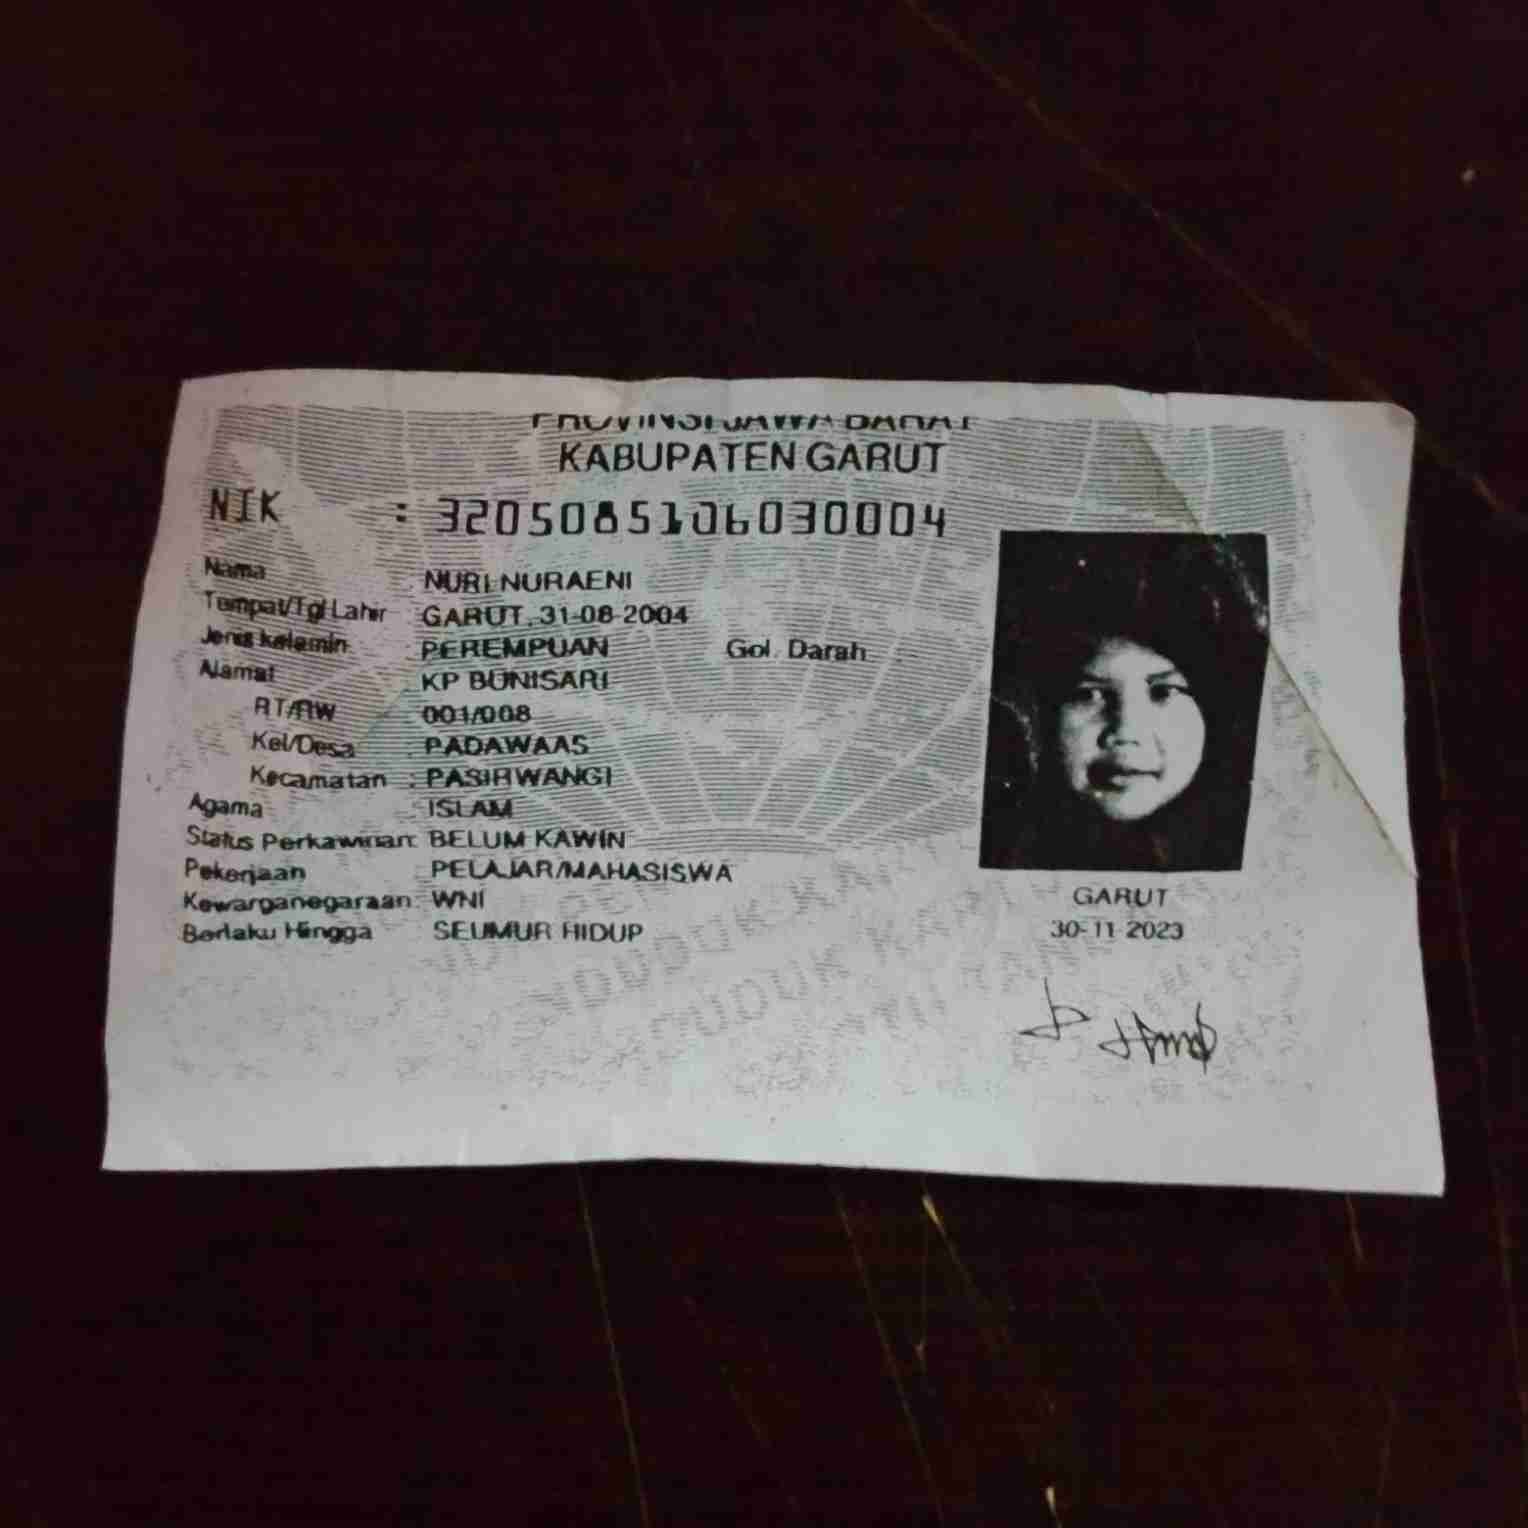 PROVINSI JAWA BARAT
KABUPATEN GARUT
NIK : 3205085106030004
Nama : NURI NURAENI
Tempat/Tgl Lahir : GARUT, 31-08-2004
Jenis kelamin : PEREMPUAN Gol. Darah
Alamat : KP BUNISARI
RT/RW : 001/008
Kel/Desa : PADAWAAS
Kecamatan : PASIRWANGI
Agama : ISLAM
Status Perkawinan: BELUM KAWIN
Pekerjaan : PELAJAR/MAHASISWA
Kewarganegaraan: WNI
Berlaku Hingga : SEUMUR HIDUP
GARUT
30-11-2023